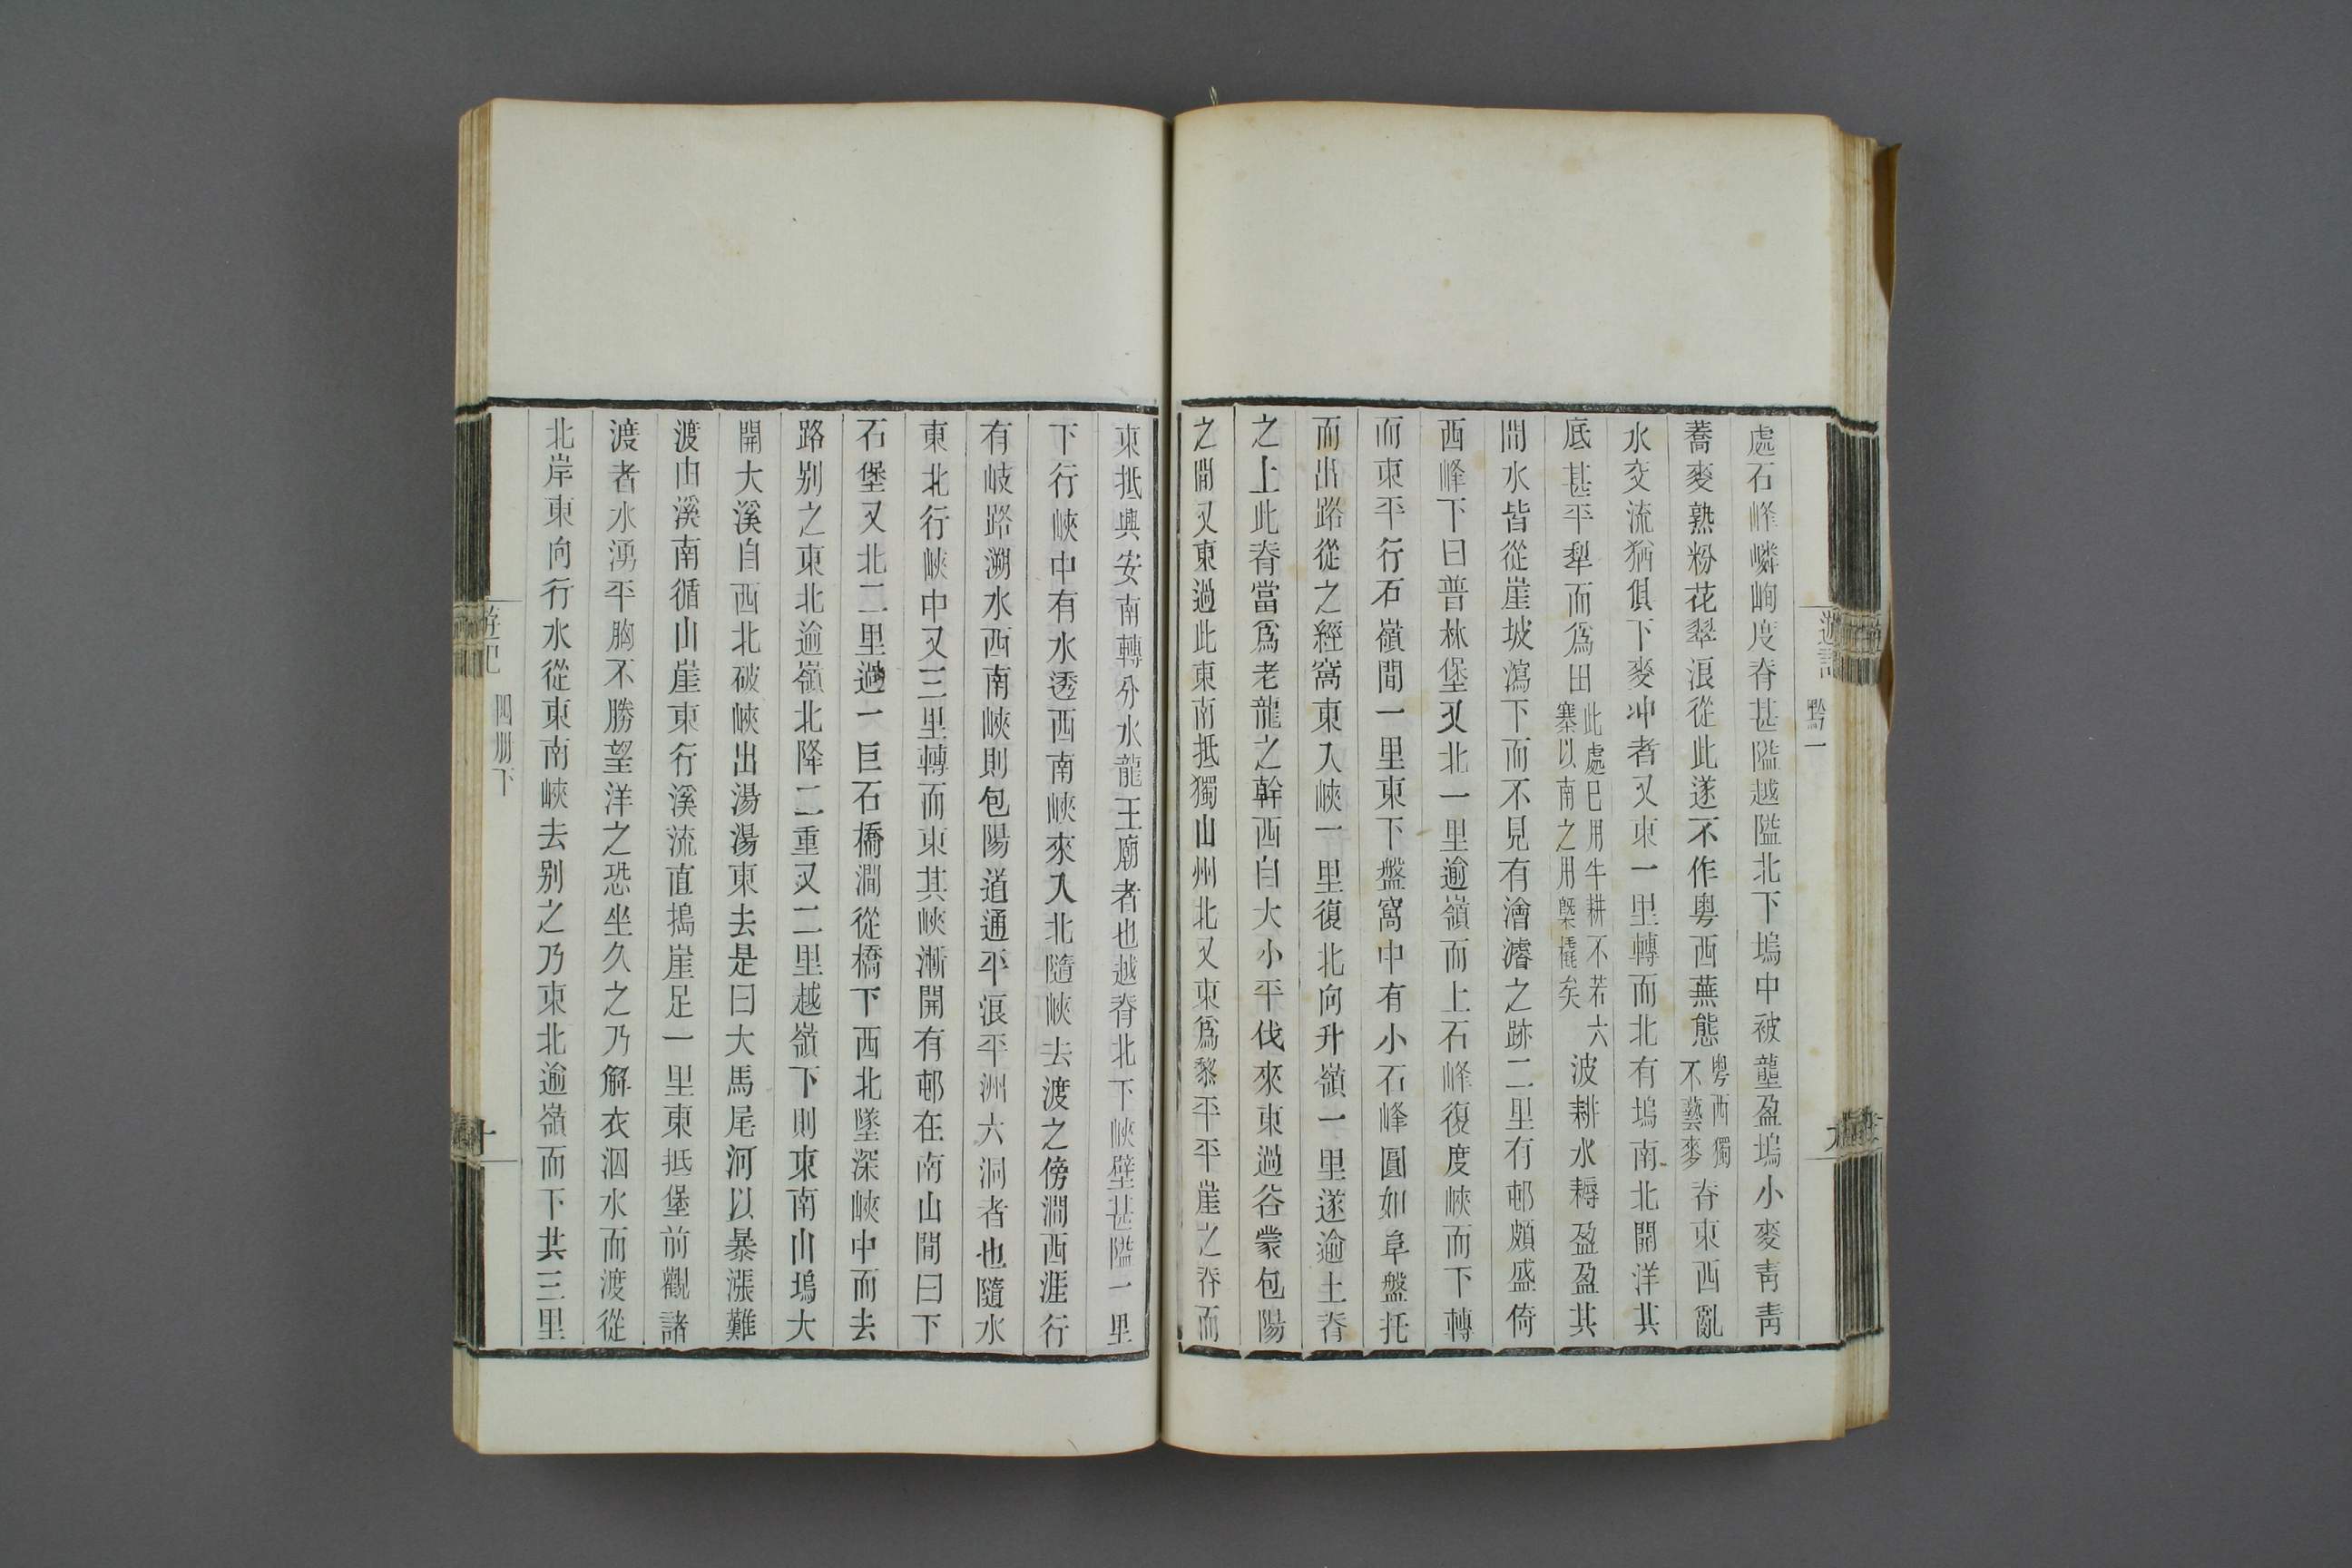 處石峰嶙峋度脊甚隘越隘北下塢中被壟盈塢小麥青青
蕎麥熟粉花翠浪從此遂不作粵西蕪態粵西獨不藝麥脊東西亂
水交流猶俱下麥冲者又東一里轉而北有塢南北開洋其
底甚平犁而爲田此處已用牛耕不若六寨以南之用橛橇矣波耕水耨盈盈其
間水皆從崖坡瀉下而不見有澮濬之跡二里有邨頗盛倚
西峰下曰普林堡又北一里逾嶺而上石峰復度峽而下轉
而東平行石嶺間一里東下盤窩中有小石峰圓如阜盤托
而出路從之經窩東入峽一里復北向升嶺一里遂逾土脊
之上此脊當爲老龍之幹西自大小平伐來東過谷蒙包陽
之間又東過此東南抵獨山州北又東爲黎平平崖之脊而
遊記 黔一
九
東抵興安南轉分水龍王廟者也越脊北下峽壁甚隘一里
下行峽中有水透西南峽來入北隨峽去渡之傍澗西涯行
有岐路溯水西南峽則包陽道通平浪平洲六洞者也隨水
東北行峽中又三里轉而東其峽漸開有邨在南山間曰下
石堡又北二里過一巨石橋澗從橋下西北墜深峽中而去
路別之東北逾嶺北降二重又二里越嶺下則東南山塢大
開大溪自西北破峽出湯湯東去是曰大馬尾河以暴漲難
渡由溪南循山崖東行溪流直搗崖足一里東抵堡前觀諸
渡者水湧平胸不勝望洋之恐坐久之乃解衣泅水而渡從
北岸東向行水從東南峽去別之乃東北逾嶺而下共三里
遊記 四册下
十